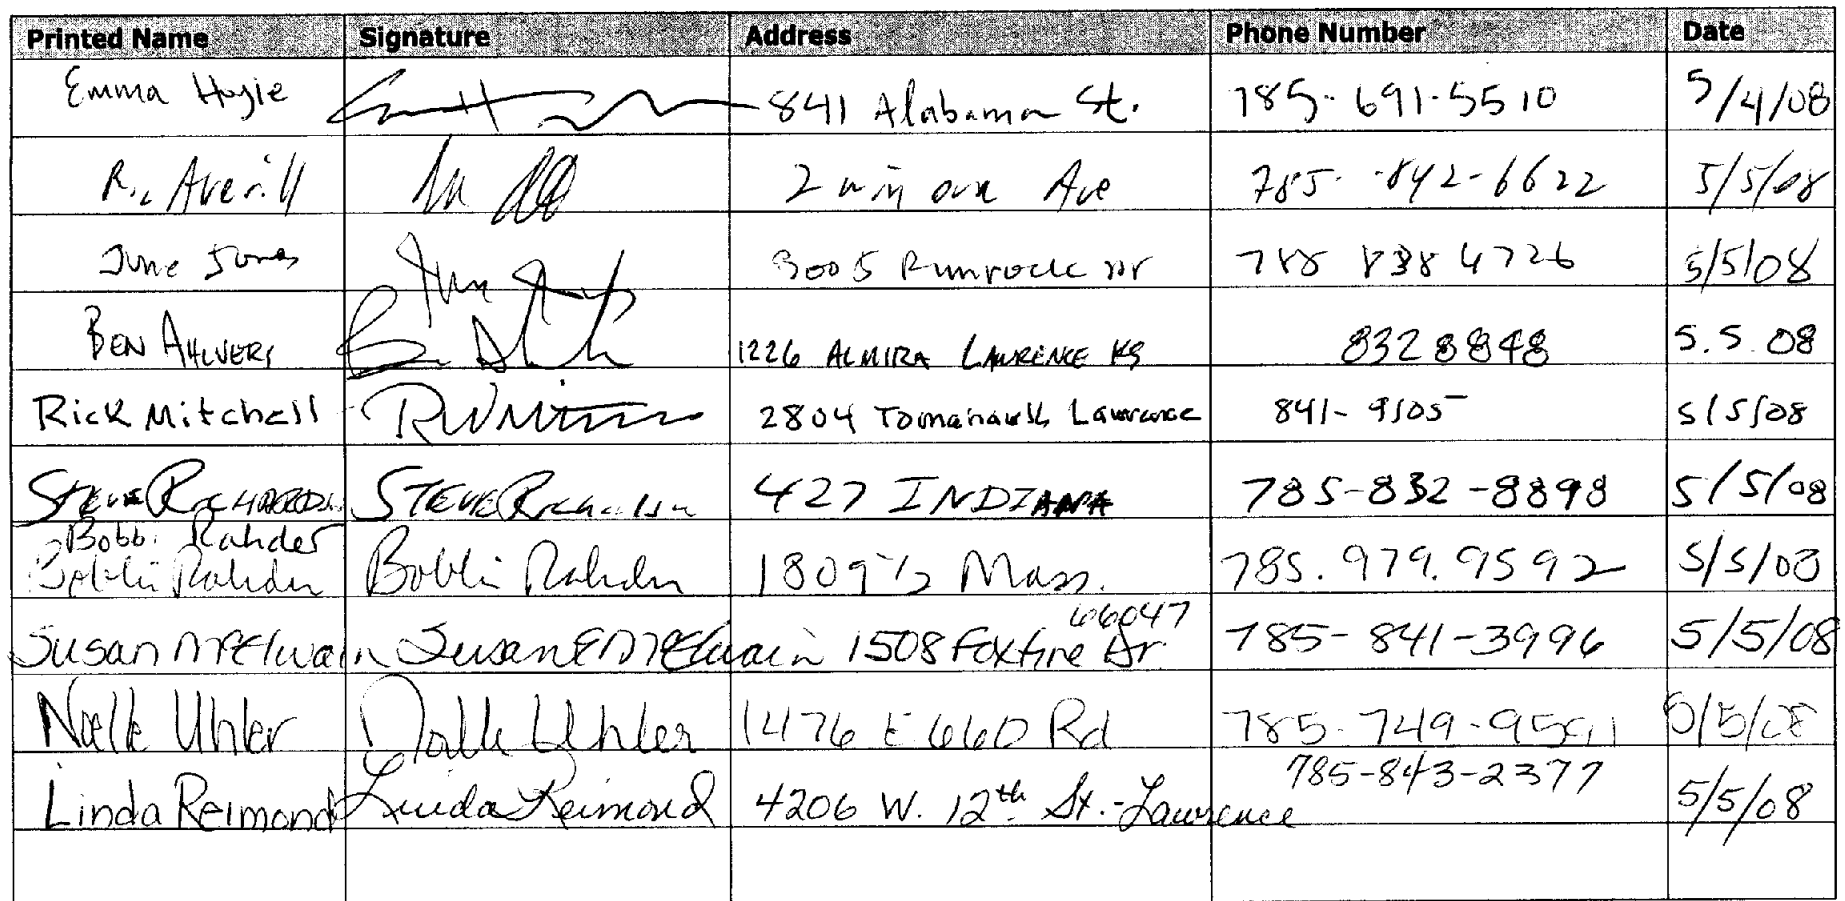 Printed Name Signature Address Phone Number Date
Emma Hogie 841 Alabama St. 785-691-5510 5/4/08
Ric Averill 2 Winona Ave 785-842-6622 5/5/08
June Jones June Jones 3005 Rimrock Dr 785 838 4726 5/5/08
BEN AHLVERS 1226 ALMIRA LAWRENCE KS 8328848 5.5.08
Rick Mitchell 2804 Tomahawk Lawrence 841-9105 5/5/08
STEVE RICHARDSON STEVE Richardson 427 INDIANA 785-832-8898 5/5/08
Bobbi Rahder
Bobbi Rahder Bobbi Rahder 1809 1/2 Mass. 785.979.9592 5/5/08
66047
Susan McElwain Susan E McElwain 1508 Foxfire Dr. 785-841-3996 5/5/08
Noelle Uhler Noelle Uhler 1476 E 660 Rd 785-749-9591 5/5/08
Linda Reimond Linda Reimond 4206 W. 12th St.-Lawrence 785-843-2377 5/5/08